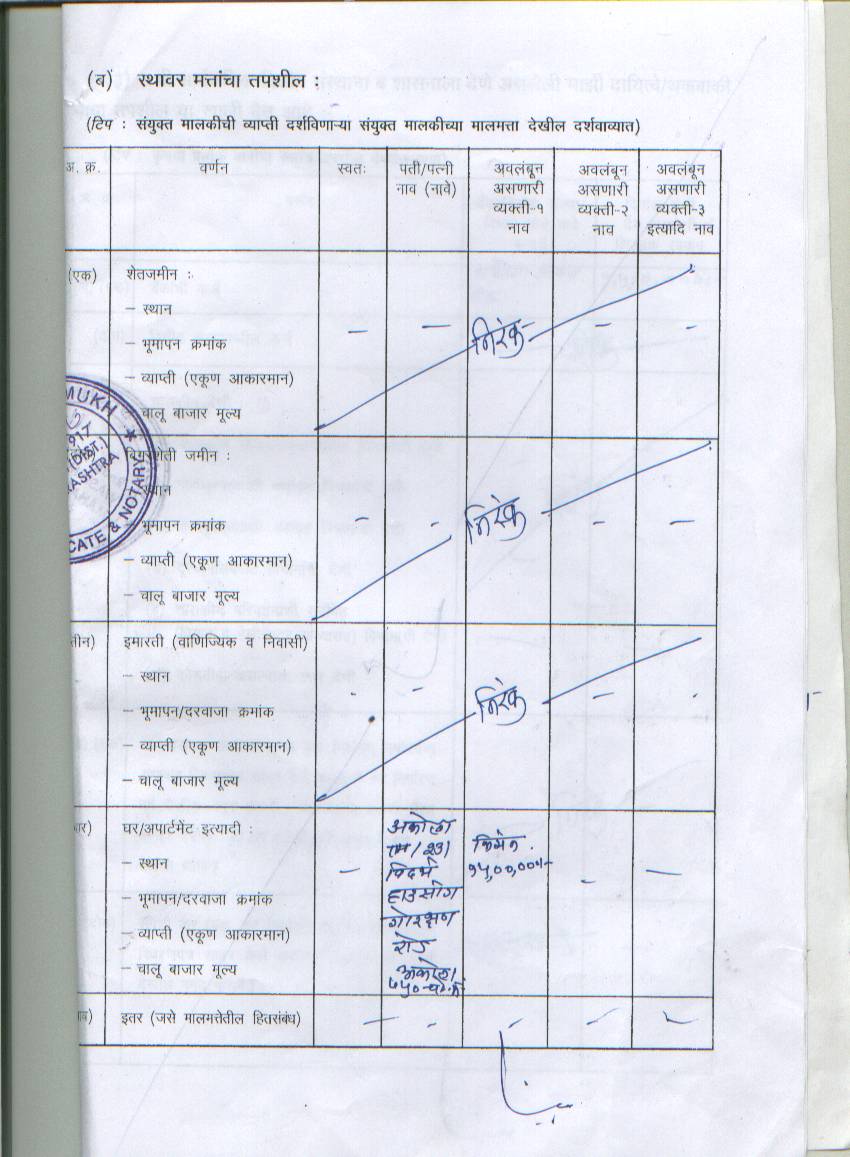 (ब) स्थावर मत्तांचा तपशील :
(टिप : संयुक्त मालकीची व्याप्ती दर्शविणाऱ्या संयुक्त मालकीच्या मालमत्ता देखील दर्शवाव्यात)
अ. क्र. वर्णन स्वतः पती/पत्नी नाव (नावे) अवलंबून असणारी व्यक्ती-१ नाव अवलंबून असणारी व्यक्ती-२ नाव अवलंबून असणारी व्यक्ती-३ इत्यादि नाव
(एक) शेतजमीन :
– स्थान – – – -
– भूमापन क्रमांक निरंक
– व्याप्ती (एकूण आकारमान)
– चालू बाजार मूल्य
MUKH
917
(DIST.)
ASHTRA
CATE & NOTARY
बिगरशेती जमीन :
– स्थान
– भूमापन क्रमांक - - निरंक – –
– व्याप्ती (एकूण आकारमान)
– चालू बाजार मूल्य
तीन) इमारती (वाणिज्यिक व निवासी)
– स्थान - - –
– भूमापन/दरवाजा क्रमांक निरंक
– व्याप्ती (एकूण आकारमान)
– चालू बाजार मूल्य
ार) घर/अपार्टमेंट इत्यादी : अकोला
– स्थान – /231 किंमत . – –
विदर्भ १५,००,०००/-
– भूमापन/दरवाजा क्रमांक हाउसींग
गोरक्षण
– व्याप्ती (एकूण आकारमान) रोड
– चालू बाजार मूल्य अकोला
ाच) इतर (जसे मालमत्तेतील हितसंबंध) – - - – –